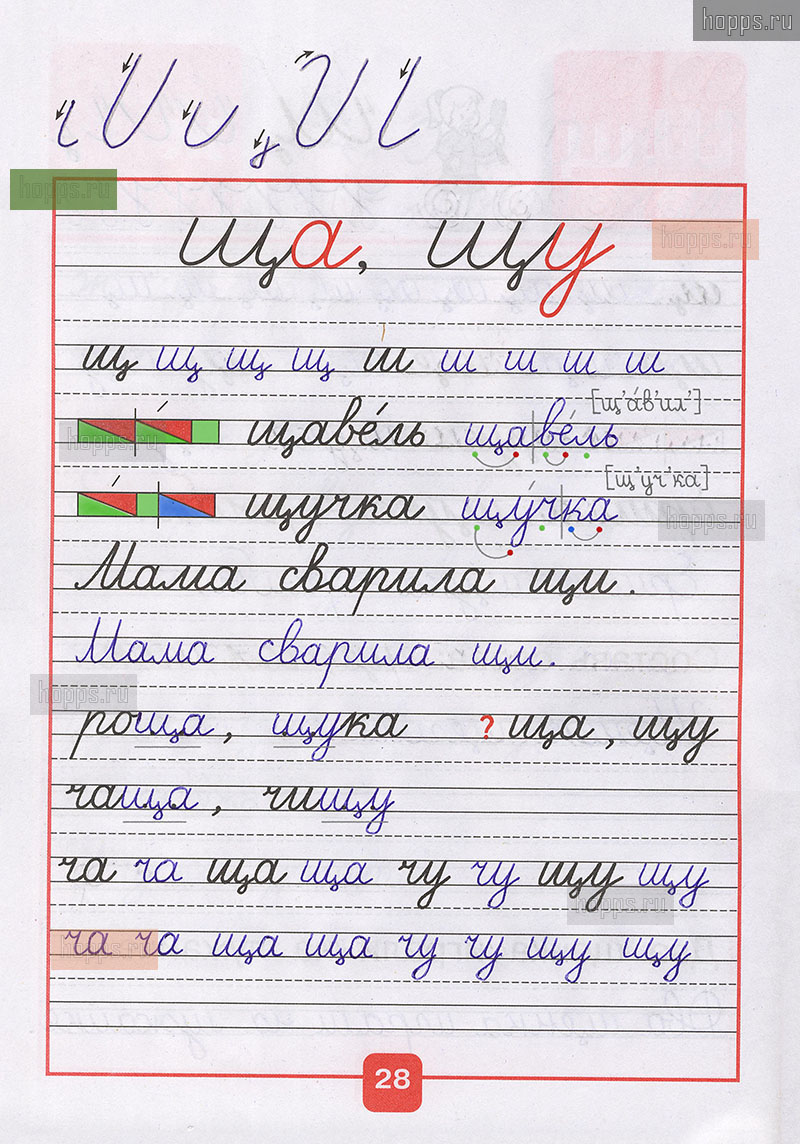 hopps.ru
hopps.ru
ща, щу
hopps.ru
щ щ щ щ ш ш ш ш ш
[щ'а́в'ил']
hopps.ru
щаве́ль щаве́ль
[щ'уч'ка]
щучка щу́чка
hopps.ru
Мама сварила щи.
Мама сварила щи.
hopps.ru
роща, щука ? ща, щу
чаща, чищу
ча ча ща ща чу чу щу щу
hopps.ru
ча ча ща ща чу чу щу щу
hopps.ru
28